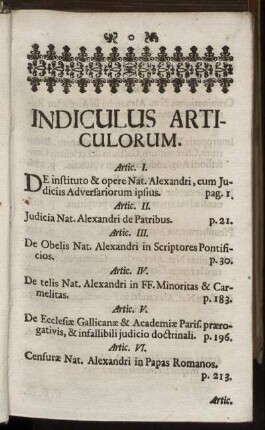 INDICULUS ARTI-
CULORUM.
Artic. I.
DE instituto & opere Nat. Alexandri, cum Ju-
diciis Adversariorum ipsius. pag. 1.
Artic. II.
Judicia Nat. Alexandri de Patribus. p. 21.
Artic. III.
De Obelis Nat. Alexandri in Scriptores Pontifi-
cios. p. 30.
Artic. IV.
De telis Nat. Alexandri in FF. Minoritas & Car-
melitas. p. 183.
Artic. V.
De Ecclesiæ Gallicanæ & Academiæ Paris. præro-
gativis, & infallibili judicio doctrinali. p. 196.
Artic. VI.
Censuræ Nat. Alexandri in Papas Romanos.
p. 213.
Artic.